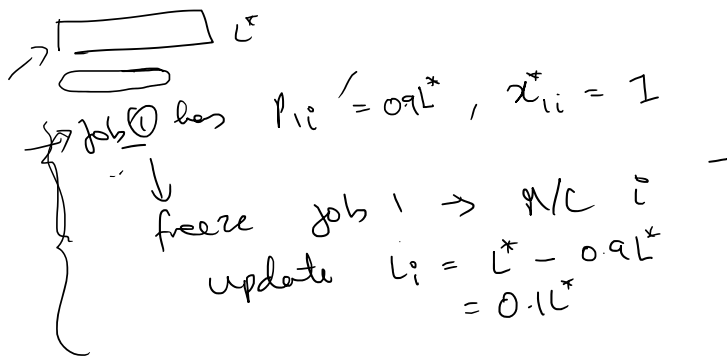 L*
→ Job ① has P₁ᵢ = 0.9L* , x*₁ᵢ = 1
↓
freeze job 1 → M/C i
update Lᵢ = L* - 0.9L*
= 0.1L*